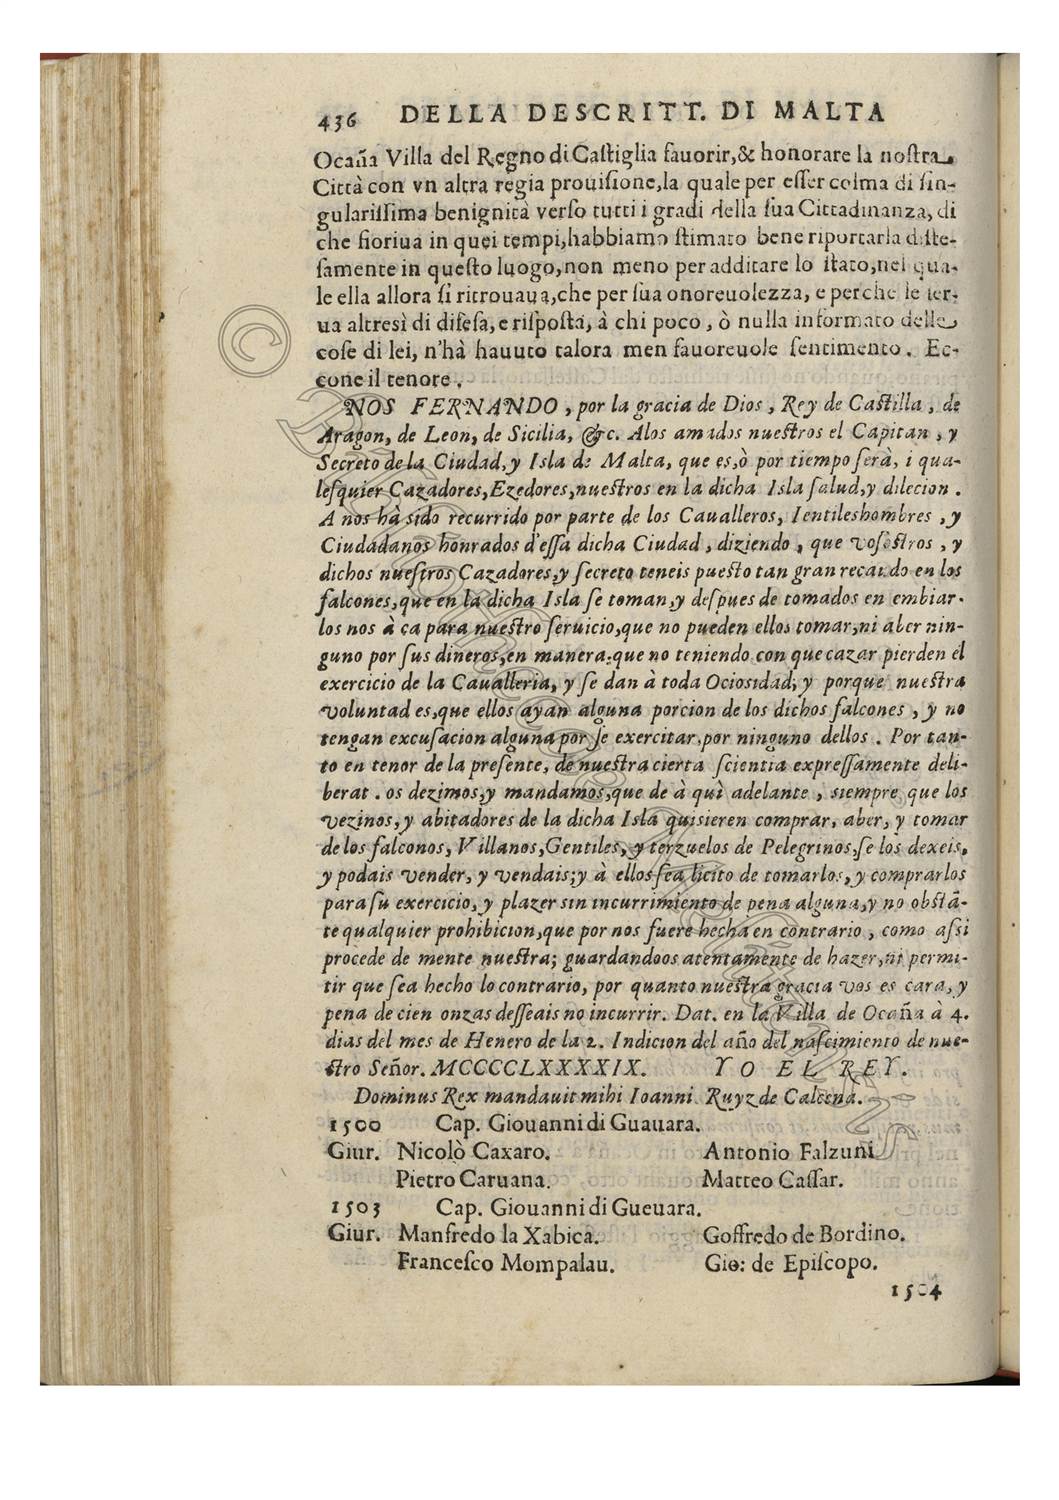 436 DELLA DESCRITT. DI MALTA
Ocaña Villa del Regno di Caſtiglia fauorir,& honorare la noſtra
Città con vn altra regia prouiſione,la quale per eſſer colma di ſin-
gulariſſima benignità verſo tutti i gradi della ſua Cittadinanza, di
che fioriua in quei tempi,habbiamo ſtimato bene riportarla diſte-
ſamente in queſto luogo,non meno per additare lo ſtato,nel qua-
le ella allora ſi ritrouaua,che per ſua onoreuolezza, e perche le ſer-
ua altresì di difeſa, e riſpoſta, à chi poco, ò nulla informato delle
coſe di lei, n'hà hauuto talora men fauoreuole ſentimento. Ec-
cone il tenore.
NOS FERNANDO, por la gracia de Dios, Rey de Caſtilla, de
Aragon, de Leon, de Sicilia, &c. Alos amados nueſtros el Capitan, y
Secreto de la Ciudad, y Isla de Malta, que es,ò por tiempo ſerà, i qua-
leſquier Cazadores,Ezedores,nueſtros en la dicha Isla ſalud,y dilecion.
A nos hà sido recurrido por parte de los Caualleros, Ientileshombres, y
Ciudadanos honrados d'eſſa dicha Ciudad, diziendo, que voſoſtros, y
dichos nueſtros Cazadores,y ſecreto teneis pueſto tan gran recaudo en los
falcones,que en la dicha Isla ſe toman,y deſpues de tomados en embiar-
los nos à ca para nueſtro ſeruicio,que no pueden ellos tomar,ni aber nin-
guno por ſus dineros,en manera,que no teniendo con que cazar pierden el
exercicio de la Caualleria, y ſe dan à toda Ociosidad; y porque nueſtra
voluntad es,que ellos ayan alguna porcion de los dichos falcones, y no
tengan excuſacion alguna por ſe exercitar,por ninguno dellos. Por tan-
to en tenor de la preſente, de nueſtra cierta ſcientia expreſſamente deli-
berat. os dezimos,y mandamos,que de à quì adelante, siempre que los
vezinos, y abitadores de la dicha Isla quisieren comprar, aber, y tomar
de los falconos, Villanos,Gentiles, y terzuelos de Pelegrinos,ſe los dexeis,
y podais vender, y vendais;y à ellos ſea licito de tomarlos, y comprarlos
para ſu exercicio, y plazer sin incurrimiento de pena alguna,y no obſtā-
te qualquier prohibicion,que por nos fuere hecha en contrario, como aſsi
procede de mente nueſtra; guardandoos atentamente de hazer,ni permi-
tir que ſea hecho lo contrario, por quanto nueſtra gracia vos es cara, y
pena de cien onzas deſſeais no incurrir. Dat. en la Villa de Ocaña à 4.
dias del mes de Henero de la 2. Indicion del año del naſcimiento de nue-
ſtro Señor. MCCCCLXXXXIX. YO EL REY.
Dominus Rex mandauit mihi Ioanni Ruyz de Calcena.
1500 Cap. Giouanni di Guauara.
Giur. Nicolò Caxaro. Antonio Falzuni
Pietro Caruana. Matteo Caſſar.
1503 Cap. Giouanni di Gueuara.
Giur. Manfredo la Xabica. Goffredo de Bordino.
Franceſco Mompalau. Gio: de Epiſcopo.
1504